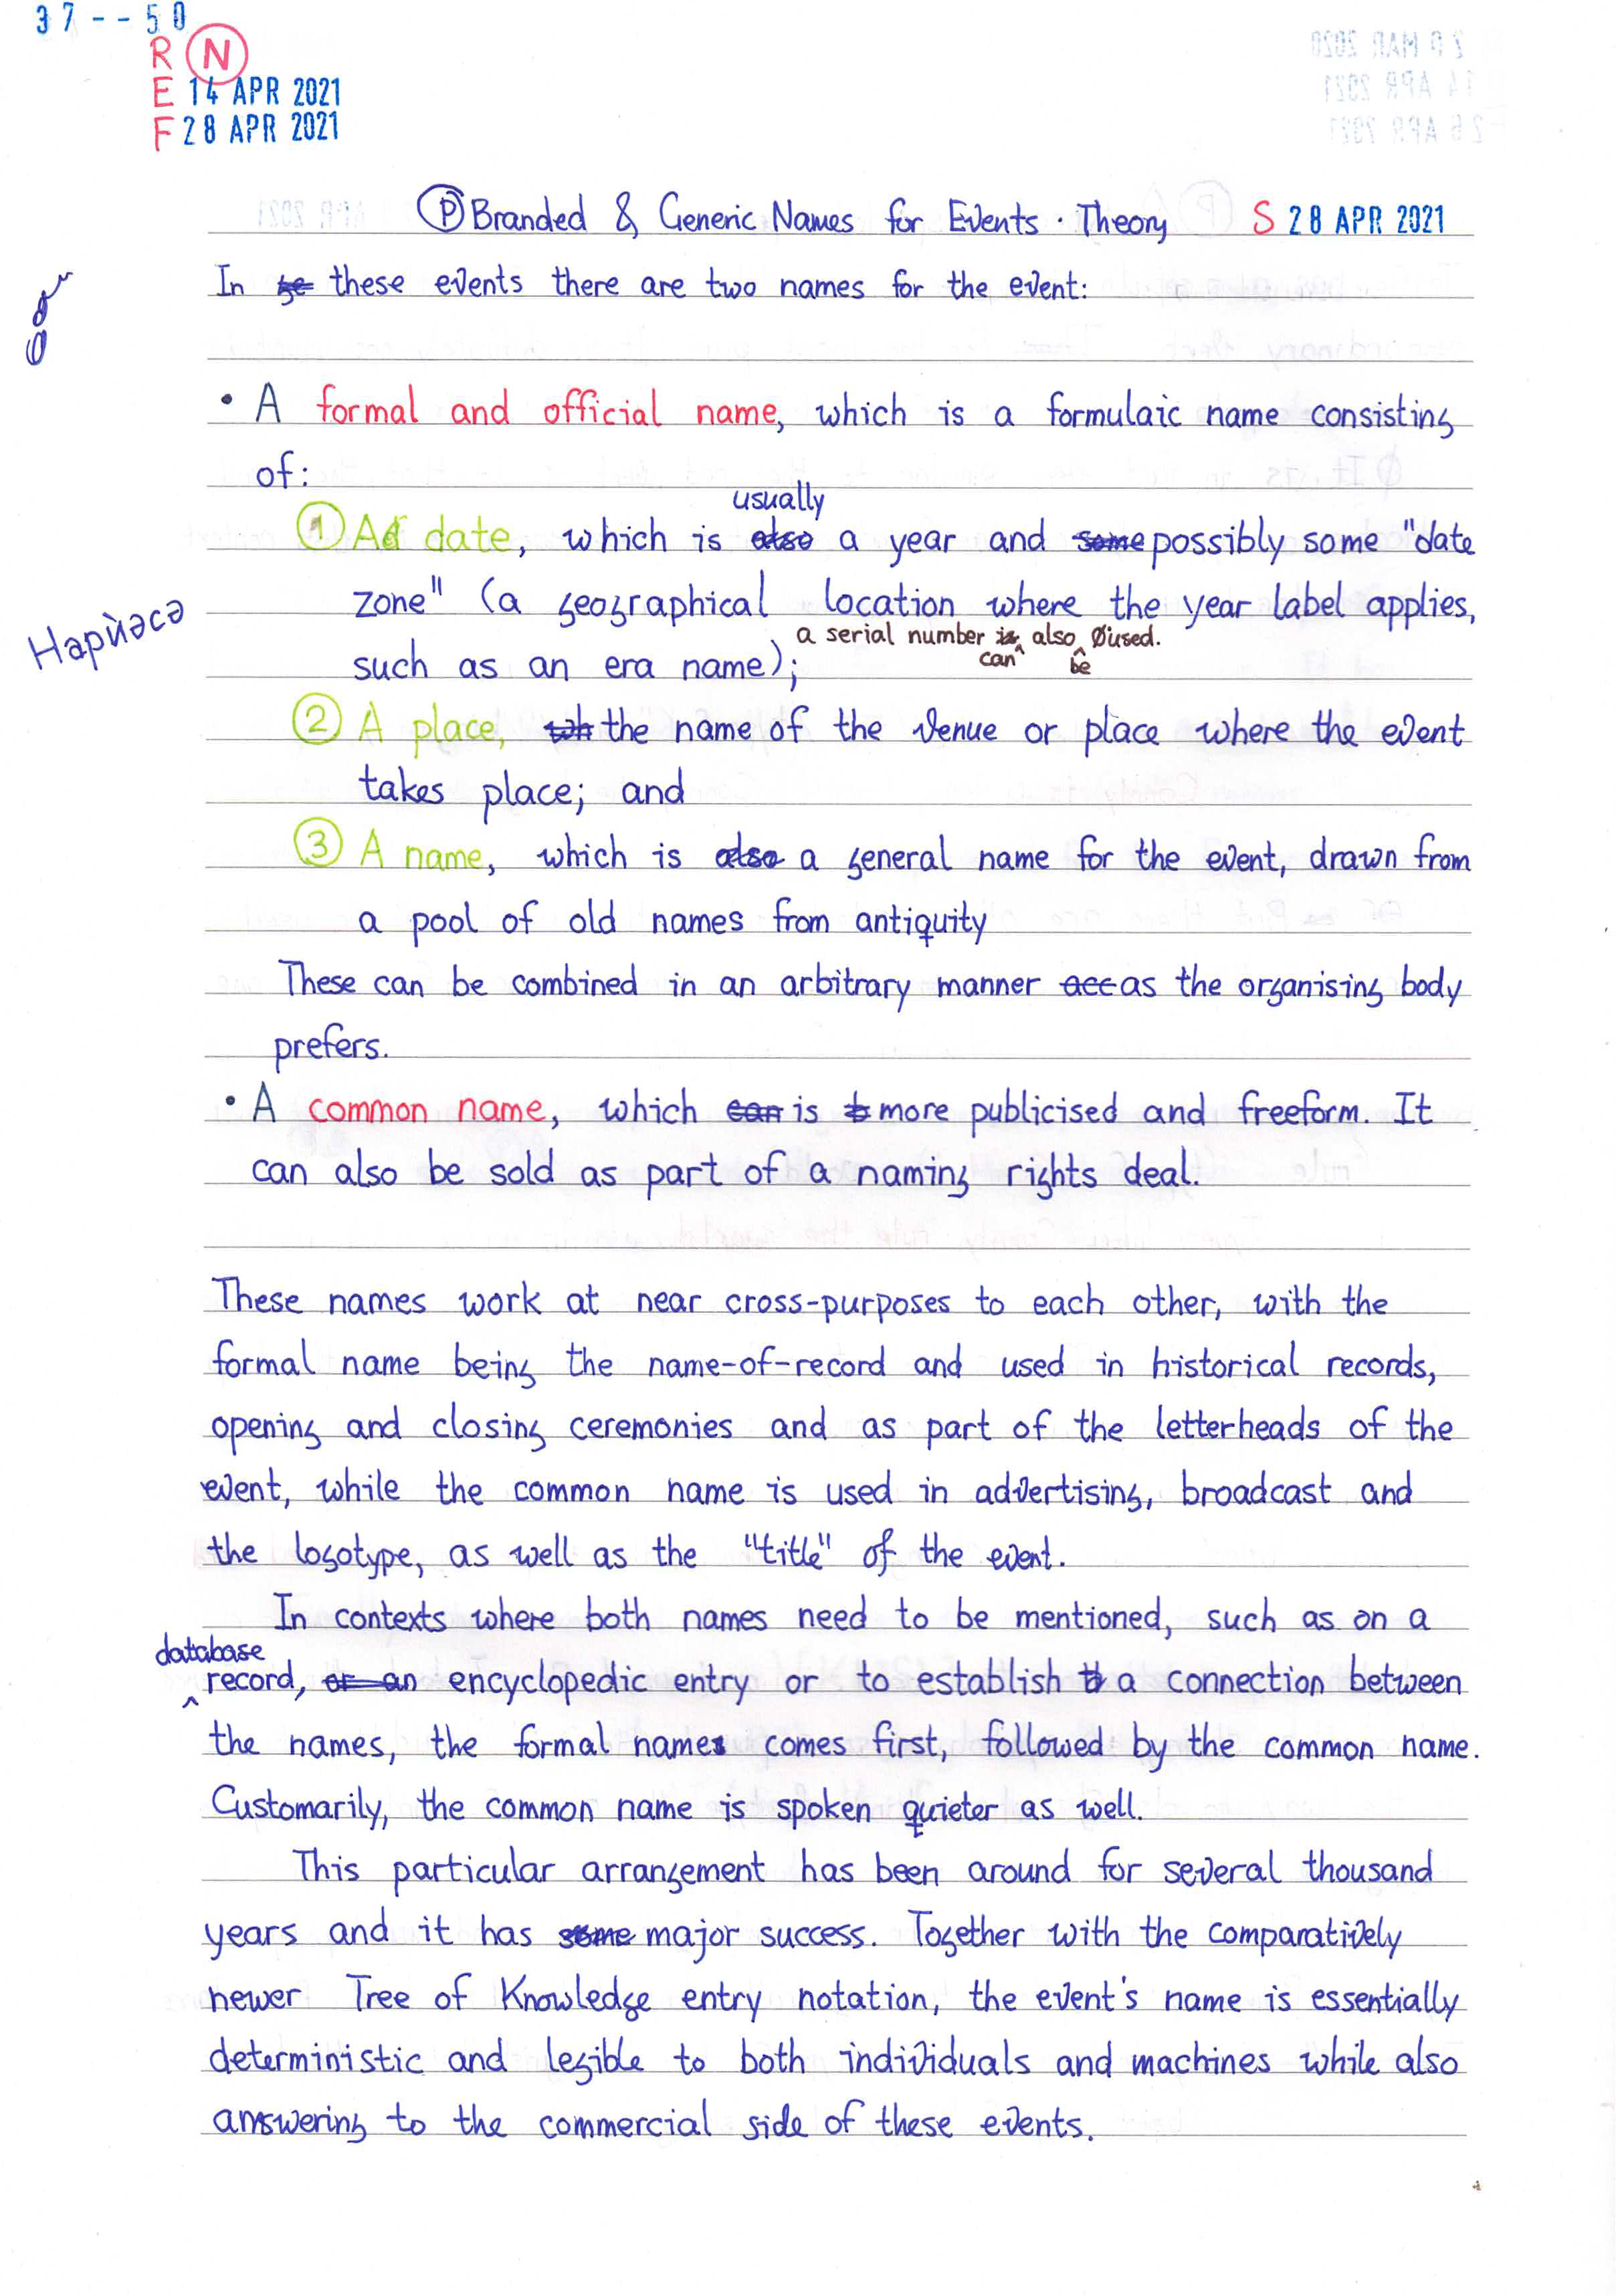 37--50
R N
E 14 APR 2021
F 28 APR 2021
P Branded & Generic Names for Events · Theory S 28 APR 2021
In se these events there are two names for the event:
• A formal and official name, which is a formulaic name consisting
of:
usually
1 A date, which is also a year and some possibly some "date
zone" (a geographical location where the year label applies,
Нарйәсә
a serial number is can also be used.
such as an era name);
2 A place, wh the name of the venue or place where the event
takes place; and
3 A name, which is also a general name for the event, drawn from
a pool of old names from antiquity
These can be combined in an arbitrary manner acc as the organising body
prefers.
• A common name, which can is more publicised and freeform. It
can also be sold as part of a naming rights deal.
These names work at near cross-purposes to each other, with the
formal name being the name-of-record and used in historical records,
opening and closing ceremonies and as part of the letterheads of the
event, while the common name is used in advertising, broadcast and
the logotype, as well as the "title" of the event.
In contexts where both names need to be mentioned, such as on a
database
record, or an encyclopedic entry or to establish a connection between
the names, the formal name comes first, followed by the common name.
Customarily, the common name is spoken quieter as well.
This particular arrangement has been around for several thousand
years and it has some major success. Together with the comparatively
newer Tree of Knowledge entry notation, the event's name is essentially
deterministic and legible to both individuals and machines while also
answering to the commercial side of these events.